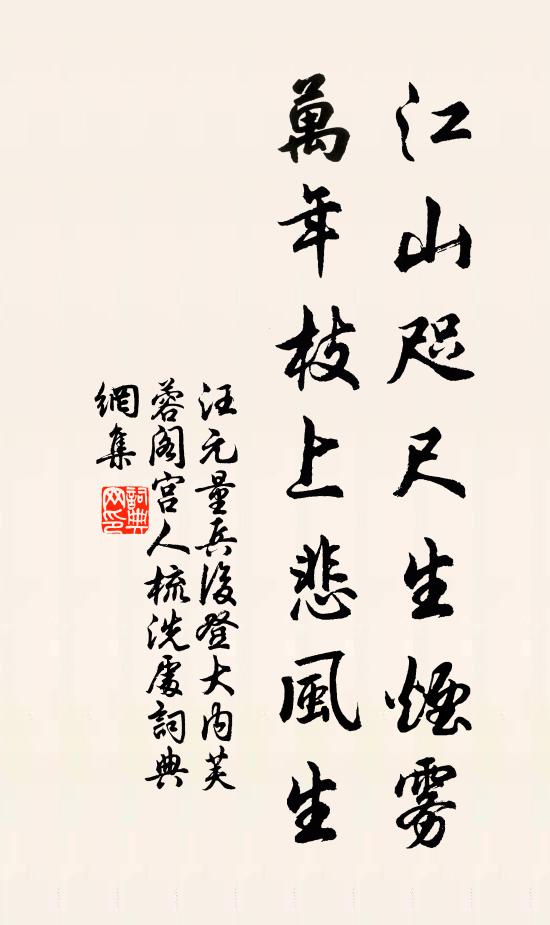 江山咫尺生煙雾
萬年枝上悲風生
汪元量兵後登大内芙
蓉阁宫人梳洗處詞典
網集
詞典网印